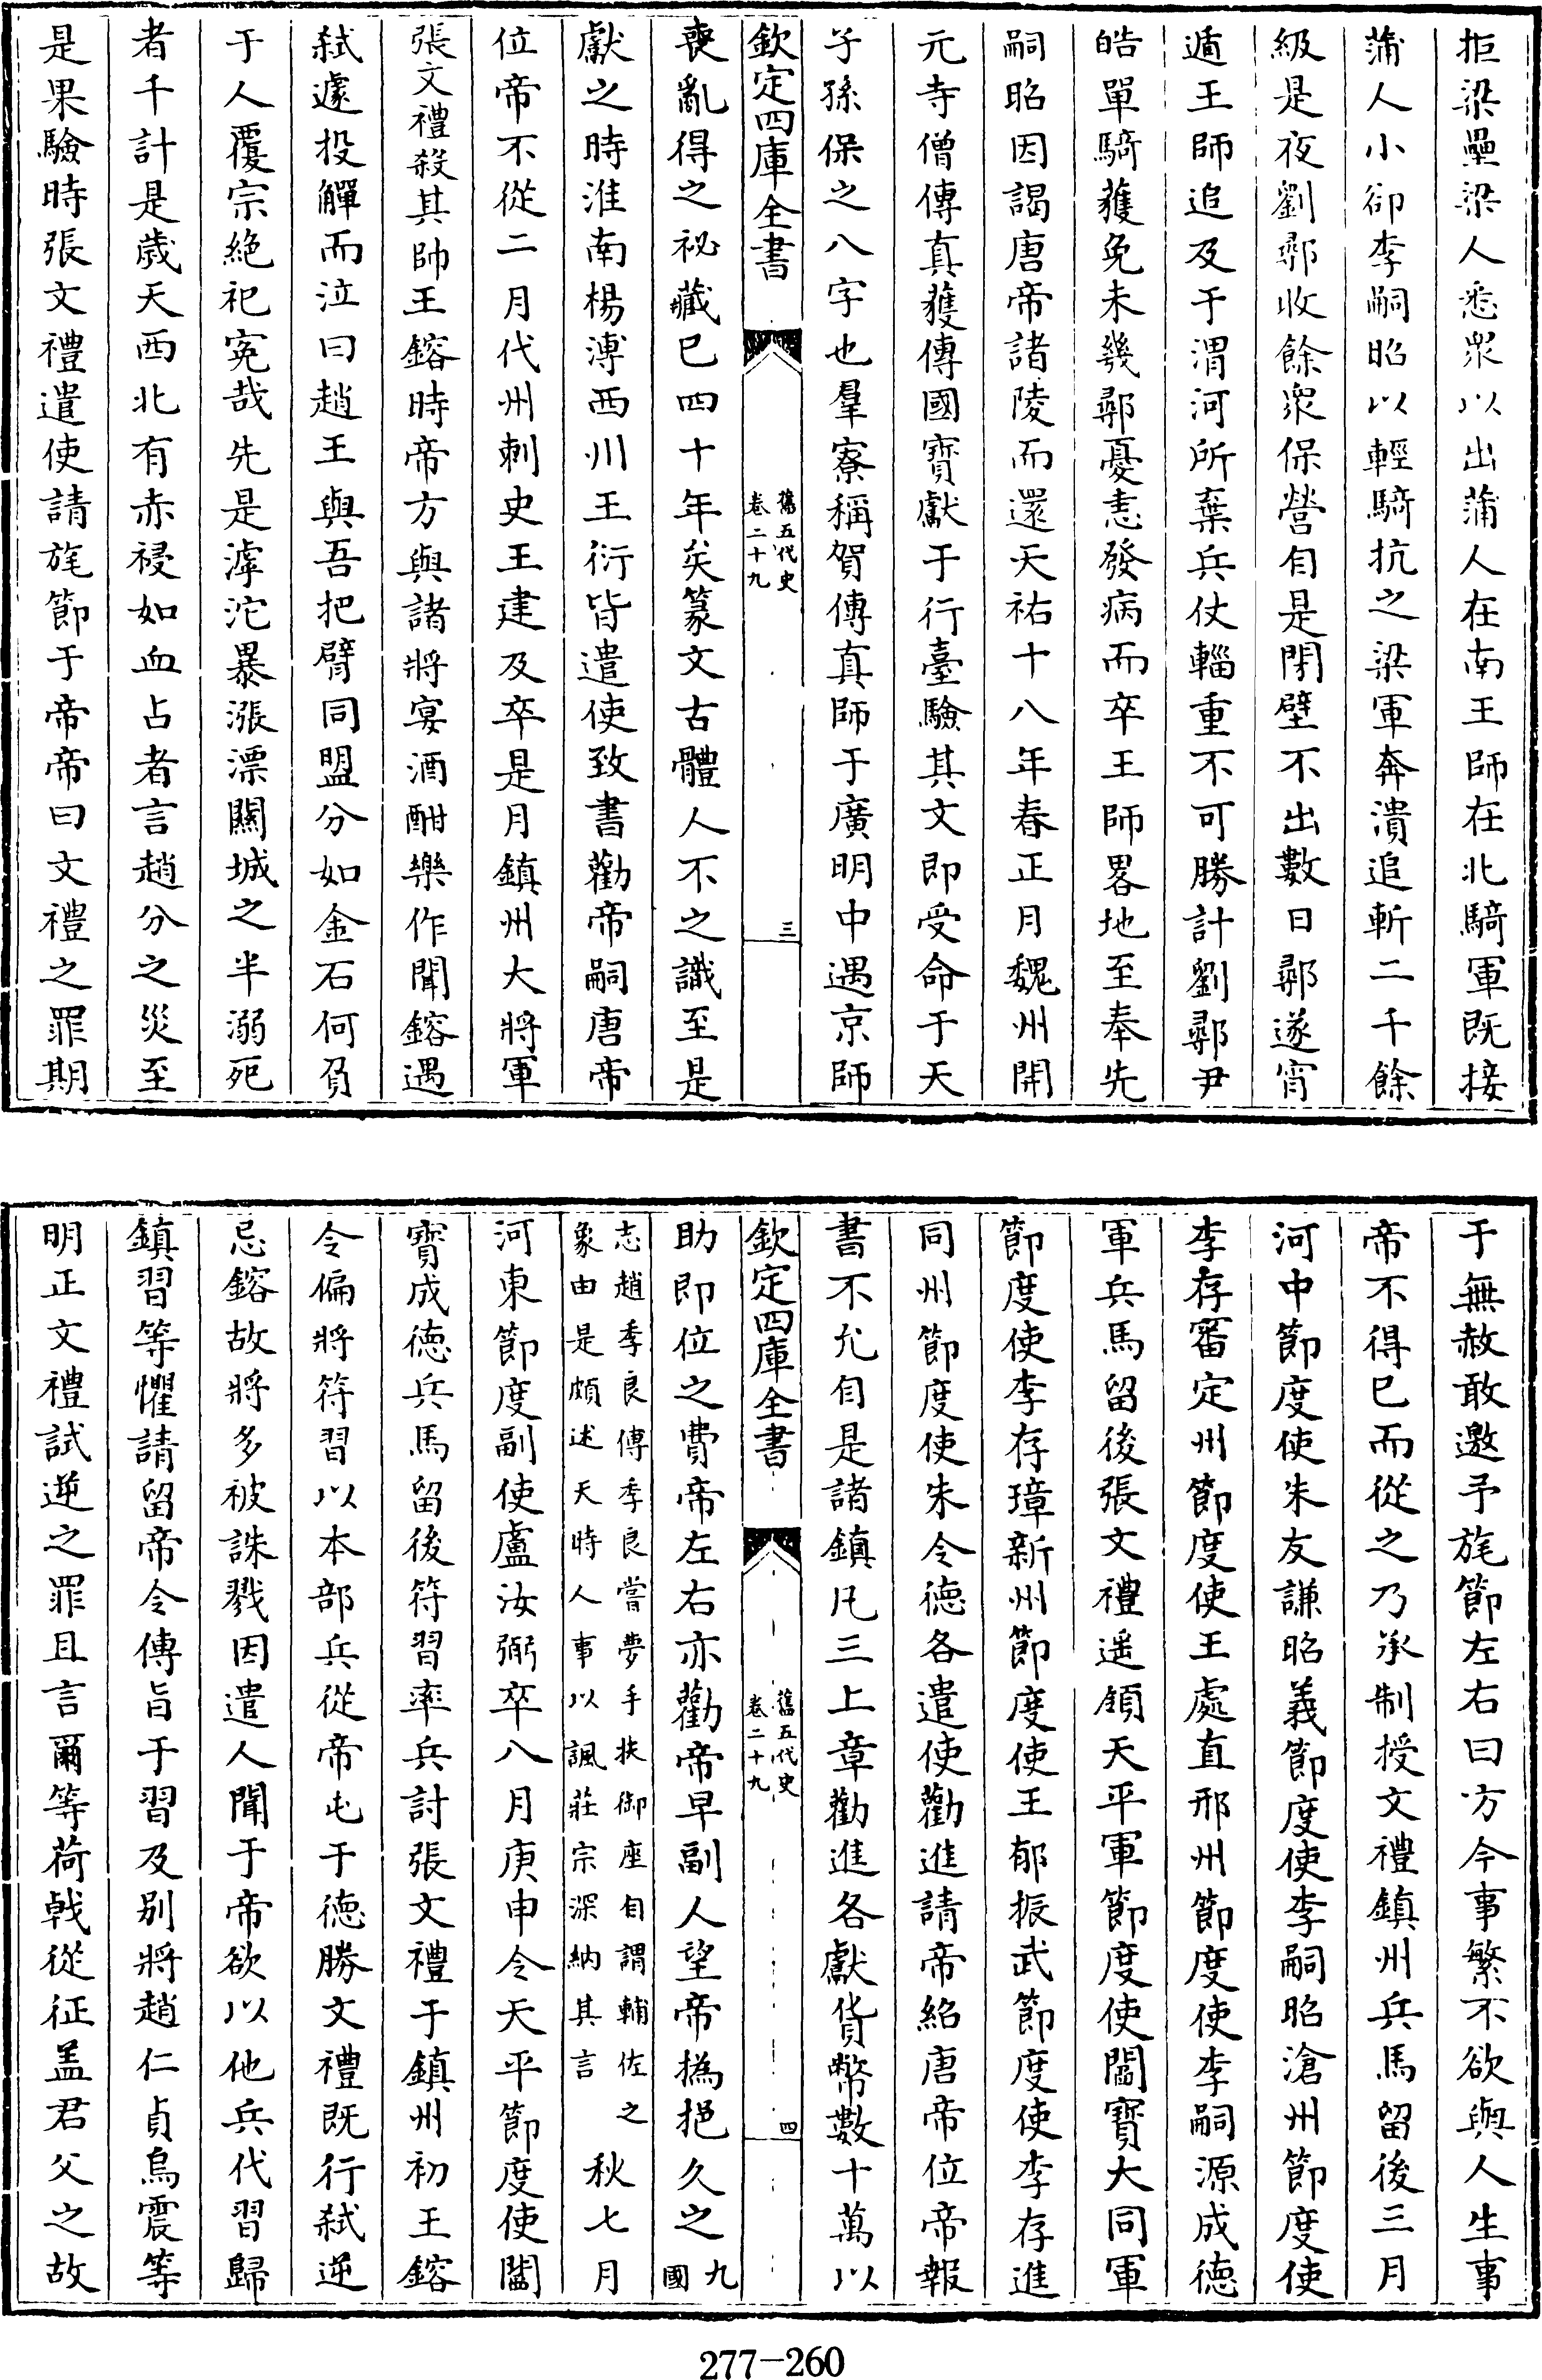 拒梁壘梁人悉衆以出蒲人在南王師在北騎軍既接
蒲人小卻李嗣昭以輕騎抗之梁軍奔潰追斬二千餘
級是夜劉鄩收餘衆保營自是閉壁不出數日鄩遂宵
遁王師追及于渭河所棄兵仗輜重不可勝計劉鄩尹
皓單騎獲免未幾鄩憂恚發病而卒王師畧地至奉先
嗣昭因謁唐帝諸陵而還天祐十八年春正月魏州開
元寺僧傳真獲傳國寳獻于行臺驗其文即受命于天
子孫保之八字也羣寮稱賀傳真師于廣明中遇京師
欽定四庫全書
舊五代史
卷二十九
三
喪亂得之祕藏已四十年矣篆文古體人不之識至是
獻之時淮南楊溥西川王衍皆遣使致書勸帝嗣唐帝
位帝不從二月代州刺史王建及卒是月鎮州大將軍
張文禮殺其帥王鎔時帝方與諸將宴酒酣樂作聞鎔遇
弑遽投觶而泣曰趙王與吾把臂同盟分如金石何負
于人覆宗絶祀寃哉先是滹沱暴漲漂關城之半溺死
者千計是歲天西北有赤祲如血占者言趙分之災至
是果驗時張文禮遣使請旄節于帝帝曰文禮之罪期
于無赦敢邀予旄節左右曰方今事繁不欲與人生事
帝不得已而從之乃承制授文禮鎮州兵馬留後三月
河中節度使朱友謙昭義節度使李嗣昭滄州節度使
李存審定州節度使王處直邢州節度使李嗣源成德
軍兵馬留後張文禮遥領天平軍節度使閻寳大同軍
節度使李存璋新州節度使王郁振武節度使李存進
同州節度使朱令德各遣使勸進請帝紹唐帝位帝報
書不允自是諸鎮凡三上章勸進各獻貨幣數十萬以
欽定四庫全書
舊五代史
卷二十九
四
助即位之費帝左右亦勸帝早副人望帝撝挹久之九國
志趙季良傳季良嘗夢手扶御座自謂輔佐之
象由是頗述天時人事以諷莊宗深納其言
秋七月
河東節度副使盧汝弼卒八月庚申令天平節度使閻
寳成德兵馬留後符習率兵討張文禮于鎮州初王鎔
令偏將符習以本部兵從帝屯于德勝文禮既行弑逆
忌鎔故將多被誅戮因遣人聞于帝欲以他兵代習歸
鎮習等懼請留帝令傳旨于習及别將趙仁貞烏震等
明正文禮試逆之罪且言爾等荷戟從征盖君父之故
277-260